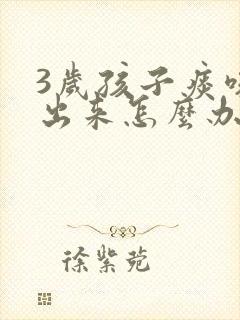 3歲孩子痰咳
出来怎麼办
徐紫苑